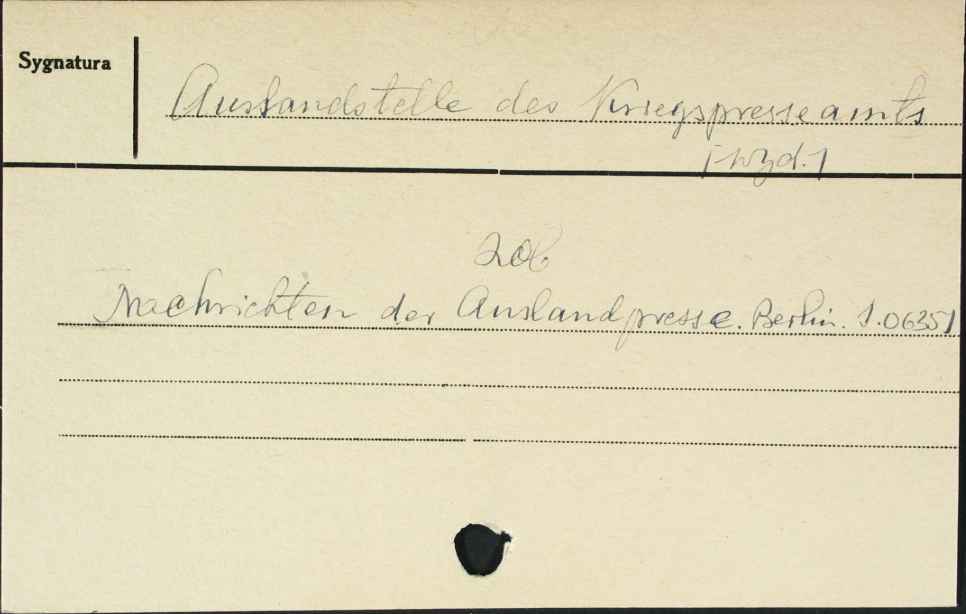 Sygnatura
Auslandstelle des Kriegspresseamts
[wyd.]
zob
Nachrichten der Auslandpresse. Berlin. S.06351